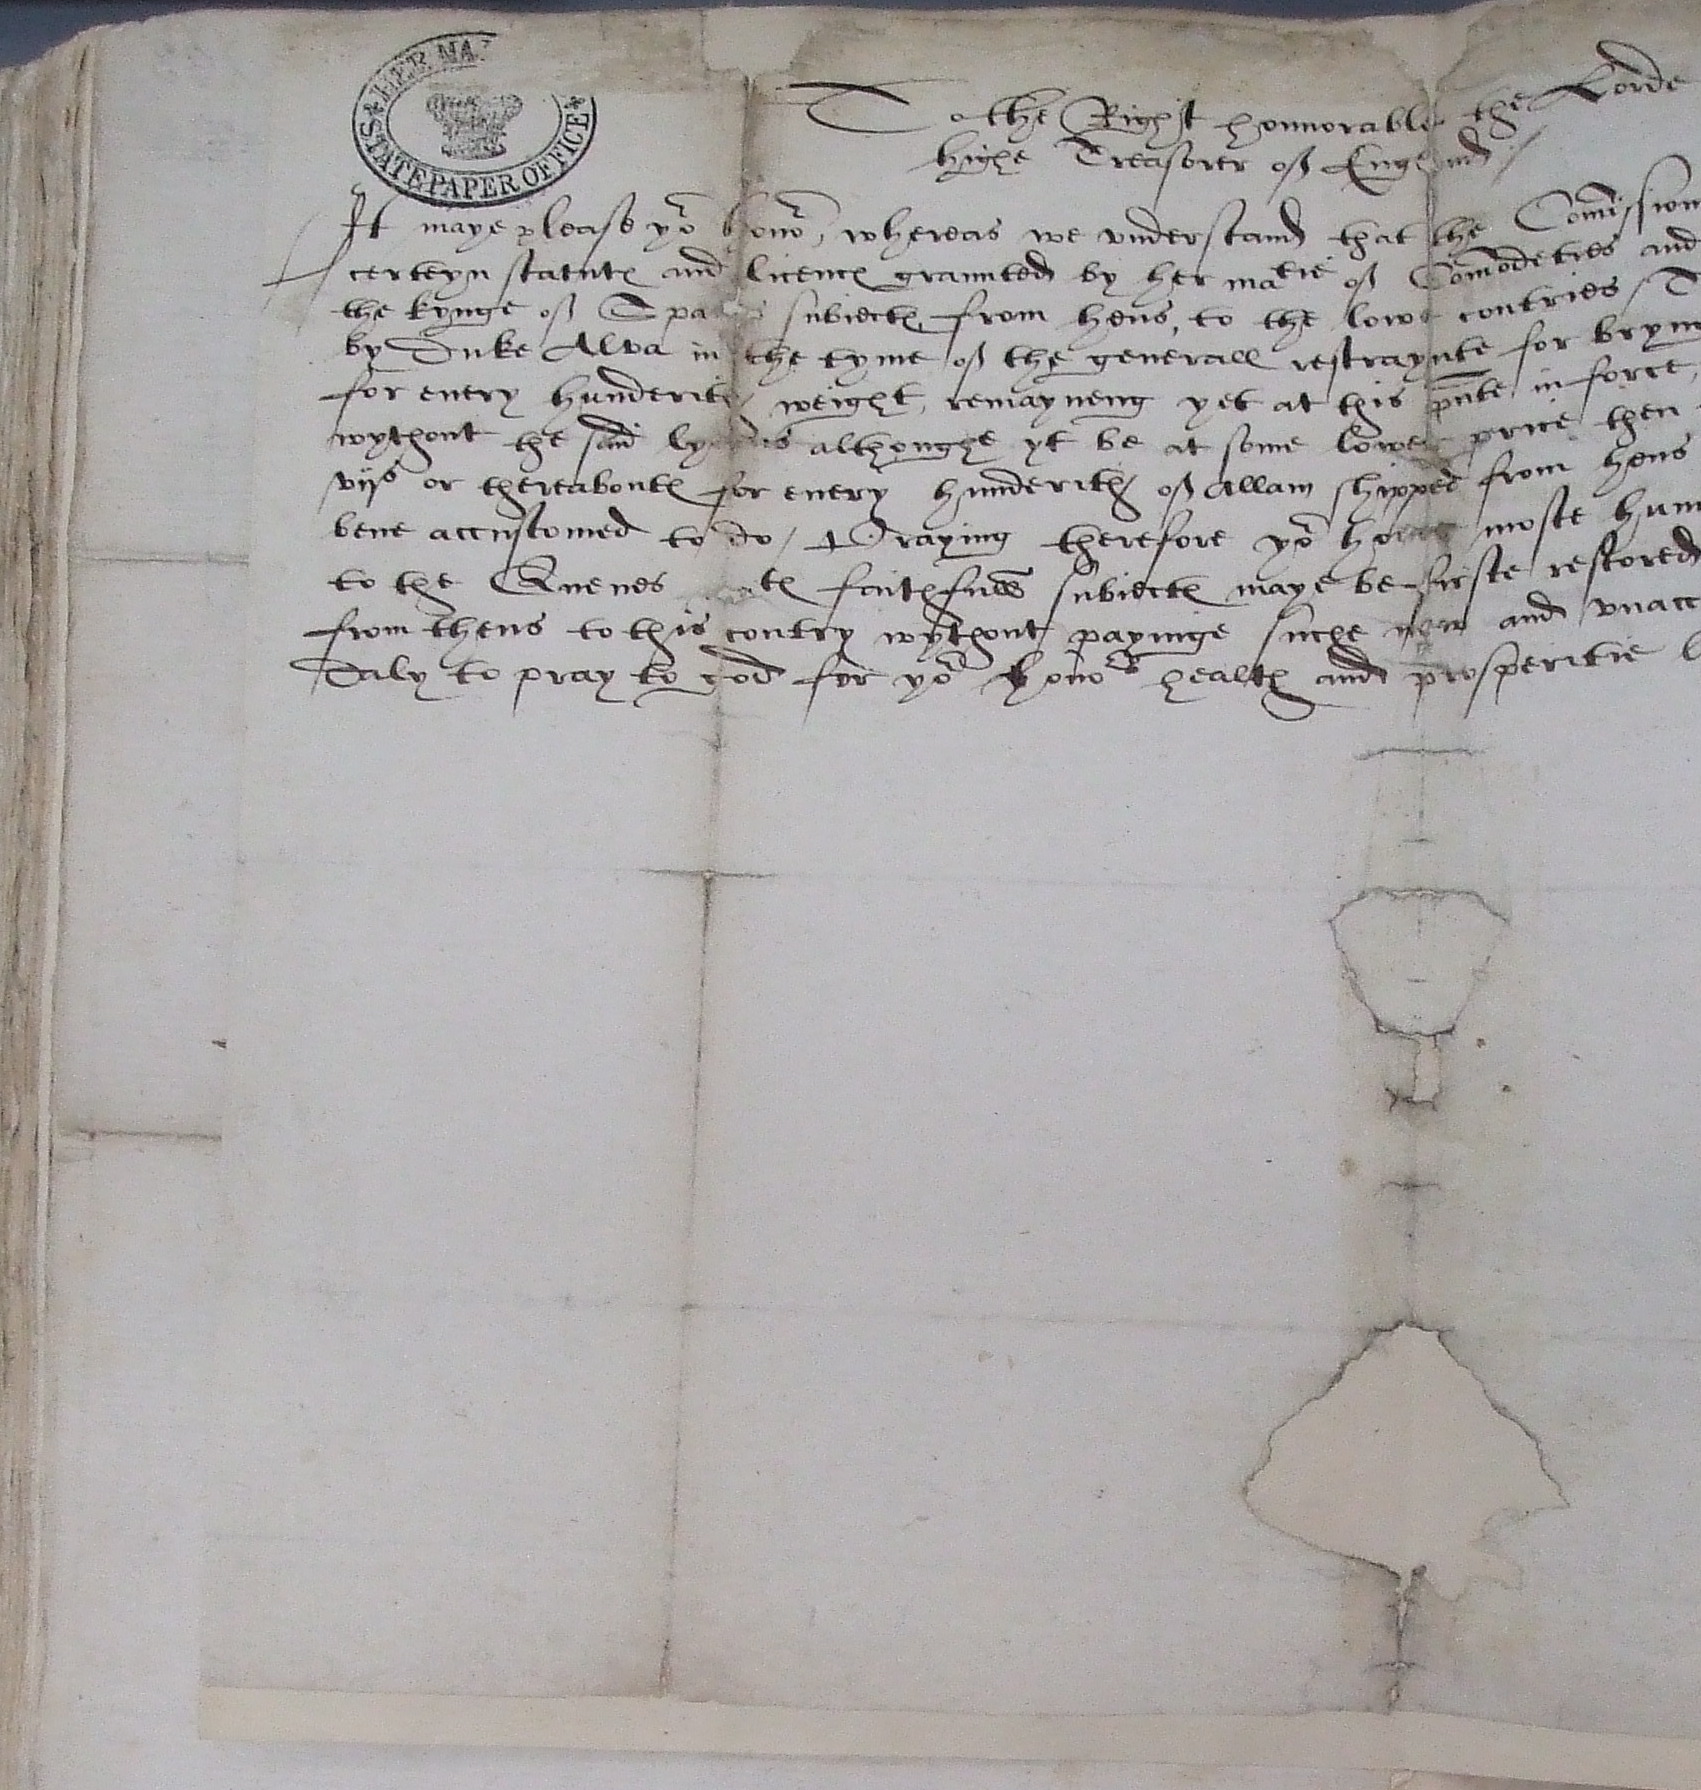 HER MA
STATE PAPER OFFICE
To the Right honnorable the Lorde
highe Treasorer of England
It maye please yor honor, whereas we vnderstand that the Comission
certeyn statutes and licences graunted by her matie of Comodeties and
the kynge of Spaines subiectes from hens, to the lowe contries
by Duke Alva in the tyme of the generall restraynte for bryng
for euery hunderith weight, remayneng yet at this pnte in force,
wythout the said lycens althoughe yt be at some lower price then
vijs or thereaboutes for euery hunderith of allam shipped from hens
bene accustomed to do / Praying therefore yor honor moste hum
to the Quenes faithfull subiectes maye be firste restored
from thens to this contry wythout payinge suche new and vnacc
Daly to pray to god for yor honors health and prosperitie